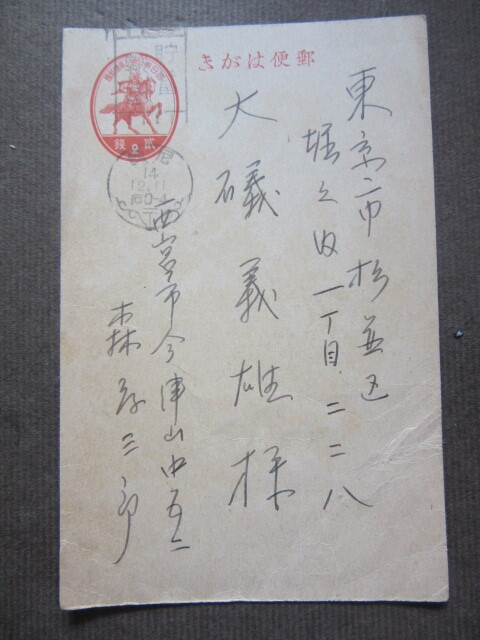 郵便はがき
東京市杉並区
堀之内一丁目二二八
大礒義雄様
西宮市今津山中五二
森 三郎
大日本帝国郵便
弐 2 銭
14
12.11